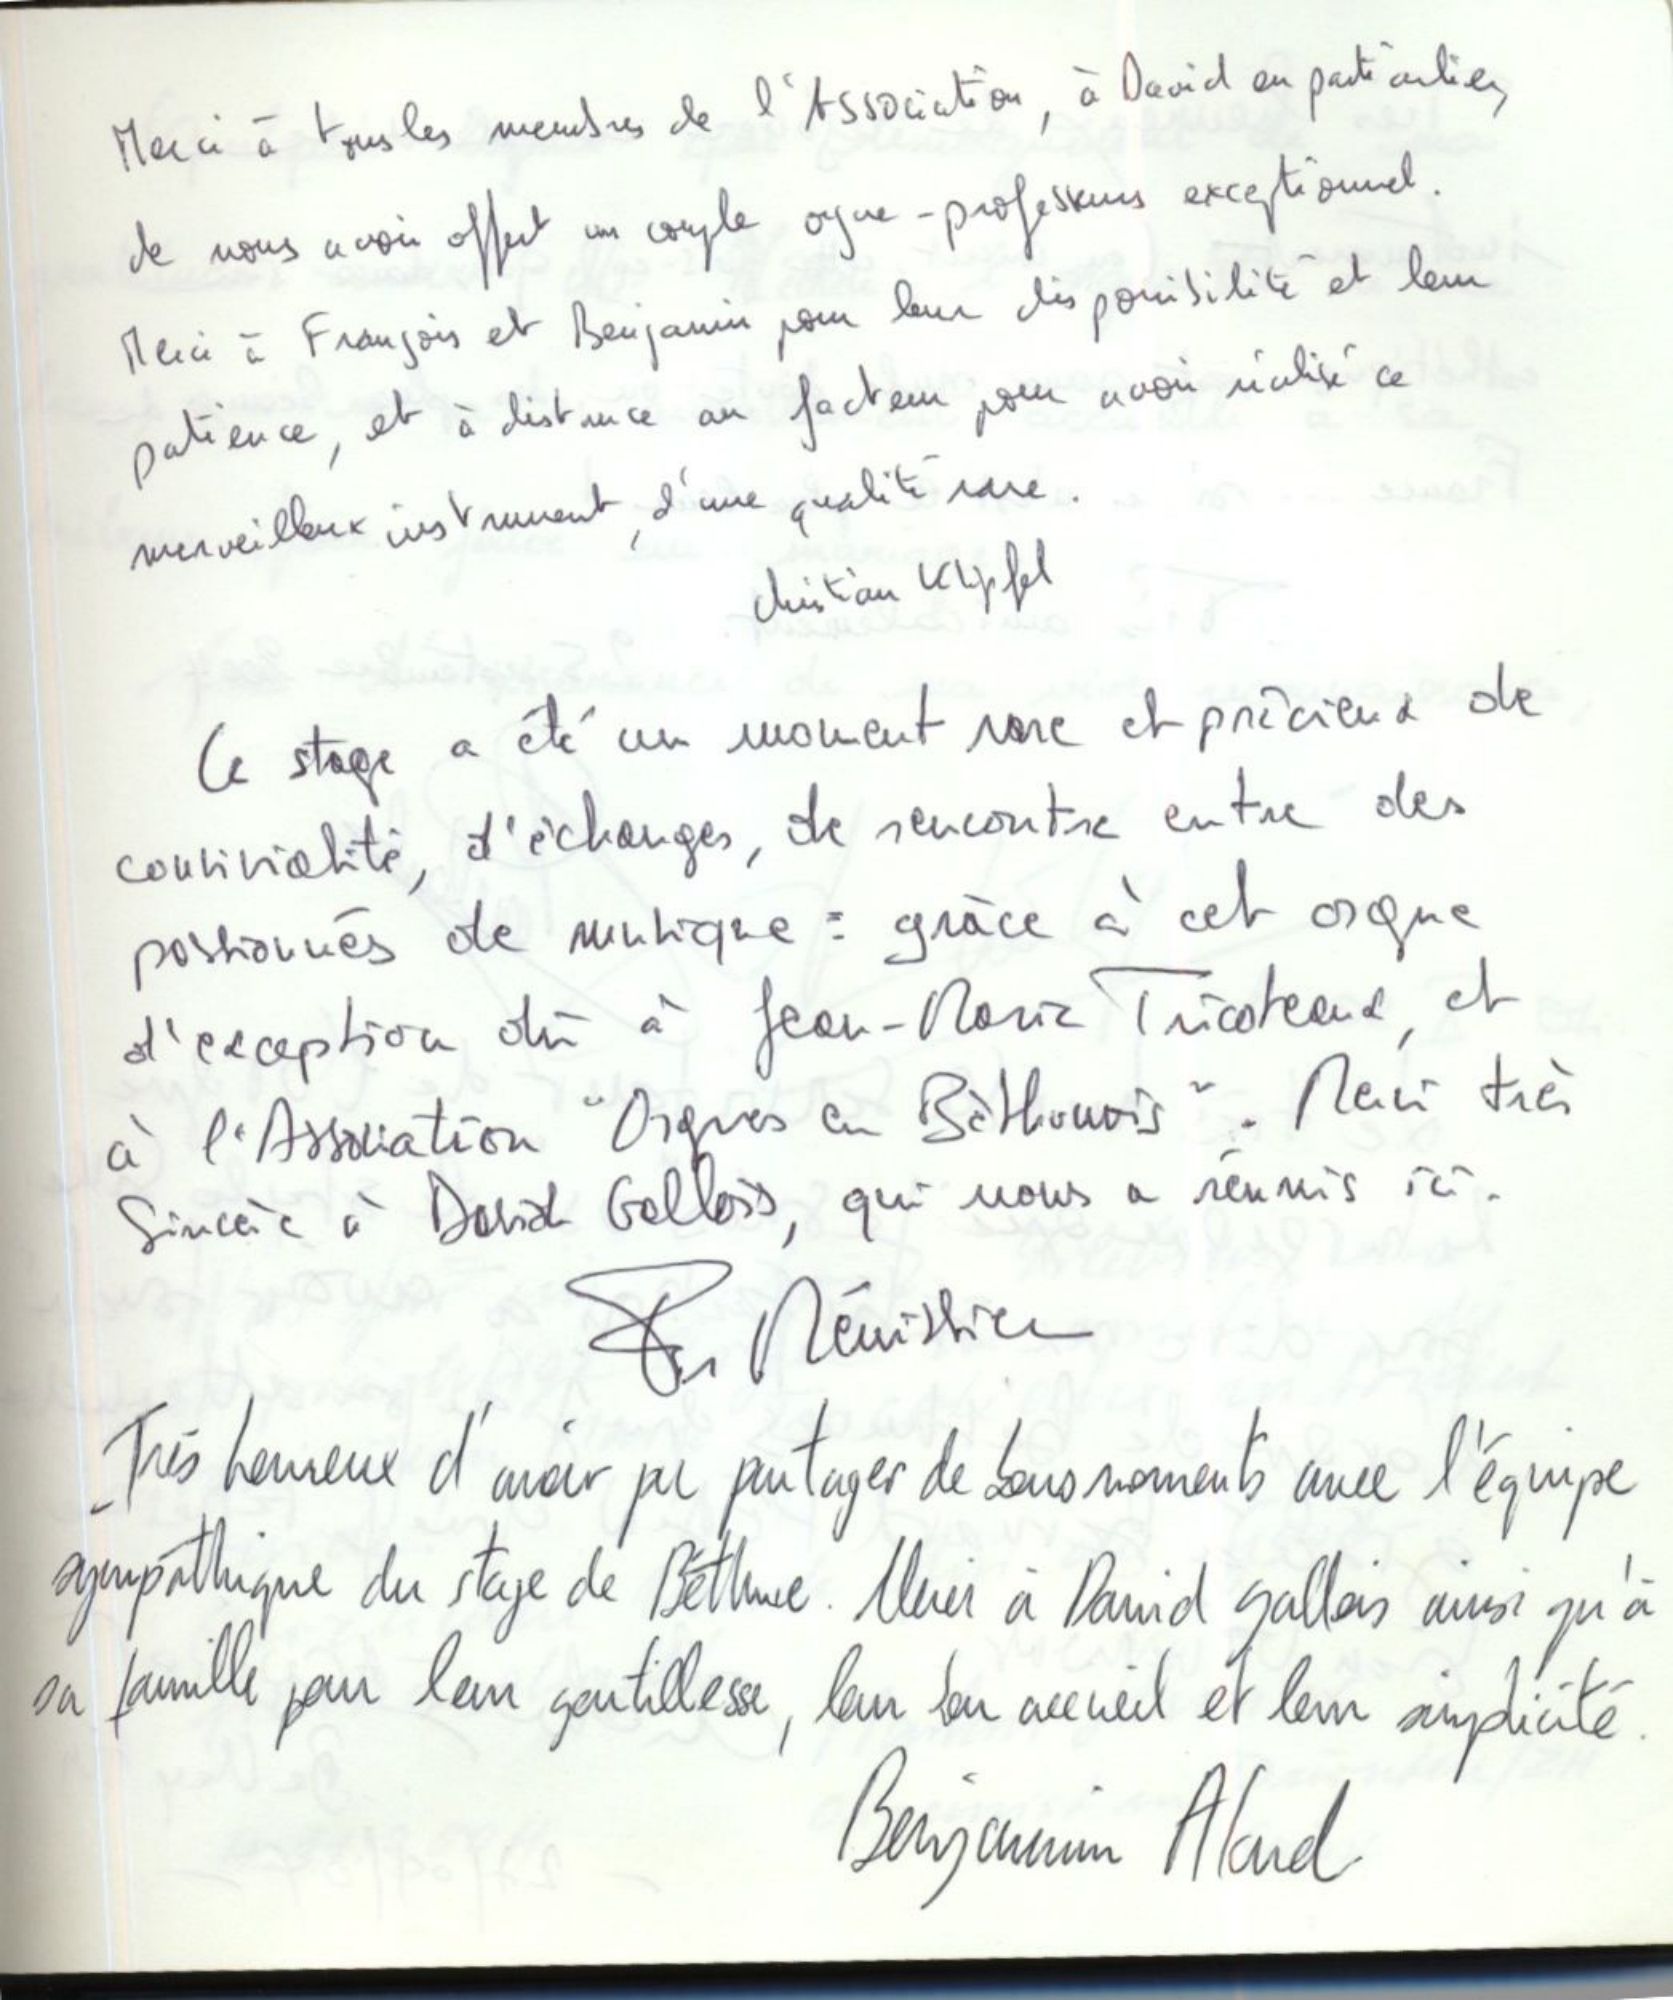 Merci à tous les membres de l'Association, à David en particulier,
de nous avoir offert un couple orgue-professeurs exceptionnel.
Merci à François et Benjamin pour leur disponibilité et leur
patience, et à distance au facteur pour avoir réalisé ce
merveilleux instrument, d'une qualité rare.
Christian
Ce stage a été un moment rare et précieux de
convivialité, d'échanges, de rencontre entre des
passionnés de musique : grâce à cet orgue
d'exception dû à Jean-Marie Tricoteaux, et
à l'Association "Orgues en Béthunois". Merci très
sincère à David Gallois, qui nous a réunis ici.
Ménissier
Très heureux d'avoir pu partager de bons moments avec l'équipe
sympathique du stage de Béthune. Merci à David Gallois ainsi qu'à
sa famille pour leur gentillesse, leur bon accueil et leur simplicité.
Benjamin Alard